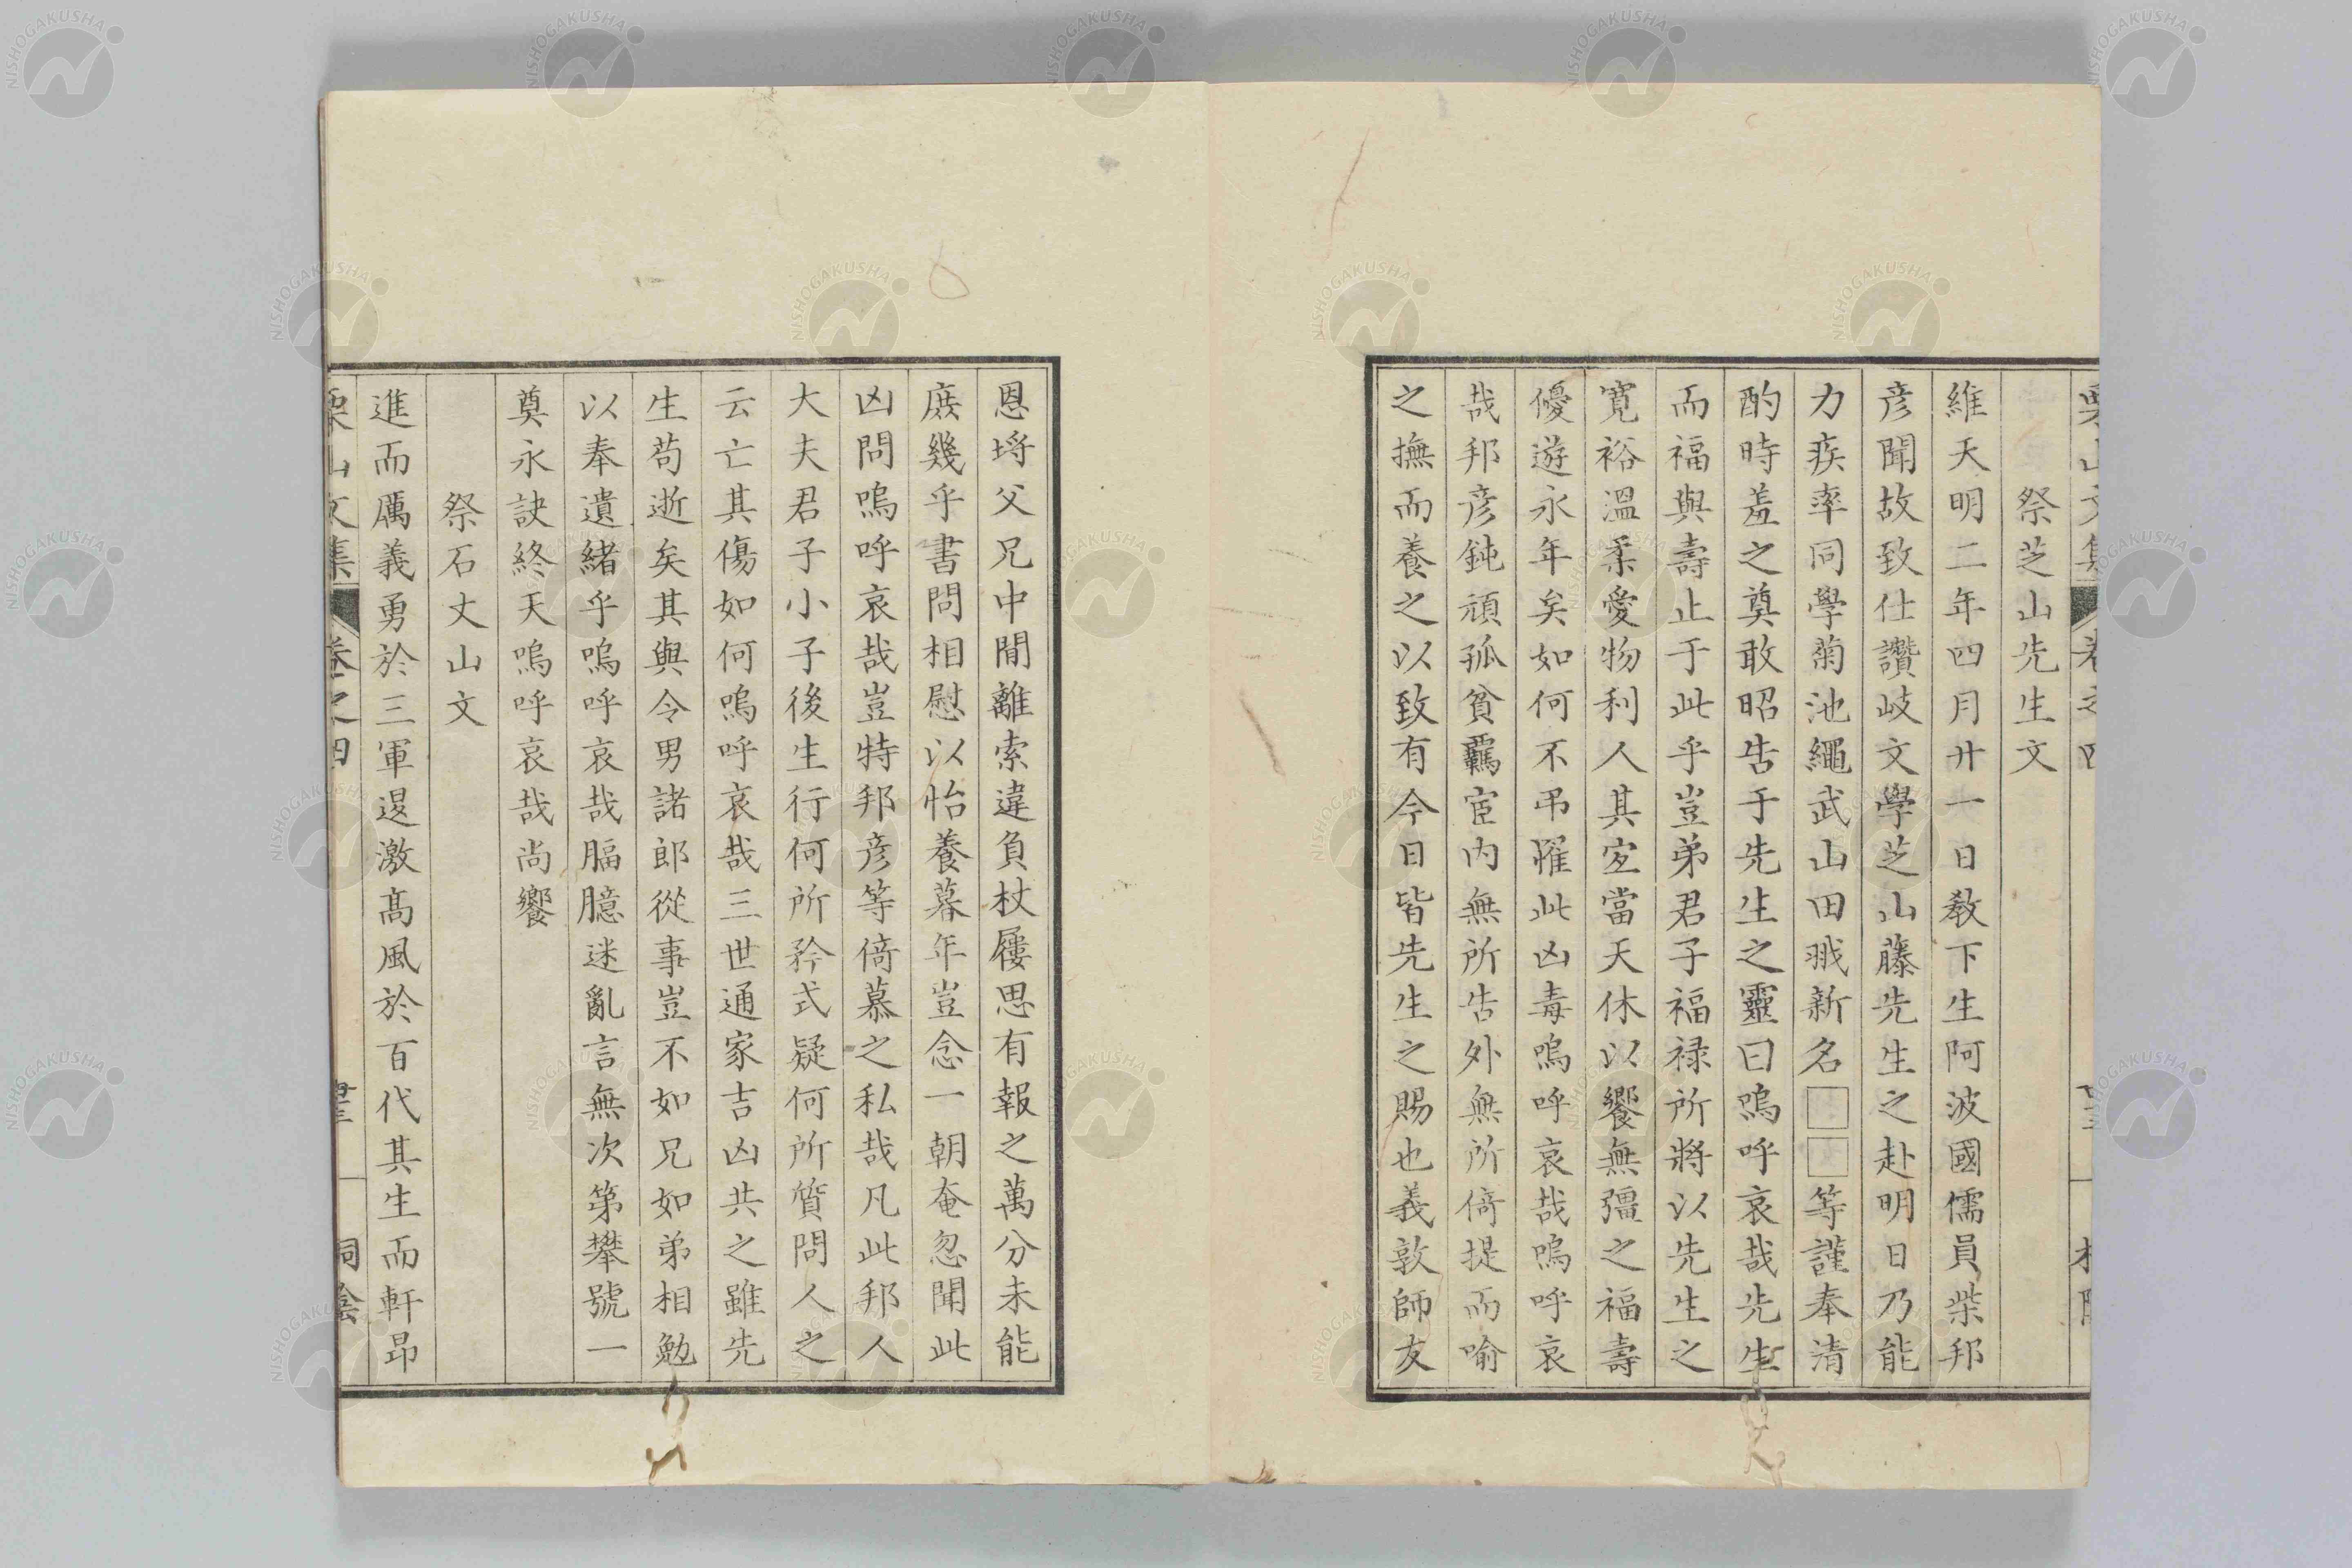 祭芝山先生文
維天明二年四月廿一日教下生阿波國儒員柴邦
彦聞故致仕讚岐文學芝山藤先生之赴明日乃能
力疾率同學菊池繩武山田戢新名□□等謹奉清
酌時羞之奠敢昭告于先生之靈曰嗚呼哀哉先生
而福與壽止于此乎豈弟君子福禄所將以先生之
寛裕溫柔愛物利人其宜當天休以饗無彊之福壽
優遊永年矣如何不弔罹此凶毒嗚呼哀哉嗚呼哀
哉邦彦鈍頑孤貧羈宦内無所告外無所倚提而喻
之撫而養之以致有今日皆先生之賜也義敦師友
恩埓父兄中間離索違負杖屨思有報之萬分未能
庶幾乎書問相慰以怡養暮年豈念一朝奄忽聞此
凶問嗚呼哀哉豈特邦彦等倚慕之私哉凡此邦人
大夫君子小子後生行何所矜式疑何所質問人之
云亡其傷如何嗚呼哀哉三世通家吉凶共之雖先
生苟逝矣其與令男諸郎從事豈不如兄如弟相勉
以奉遺緒乎嗚呼哀哉膈臆迷亂言無次第攀號一
奠永訣終天嗚呼哀哉尚饗
祭石丈山文
進而厲義勇於三軍退激髙風於百代其生而軒昂
栗山文集 卷之四